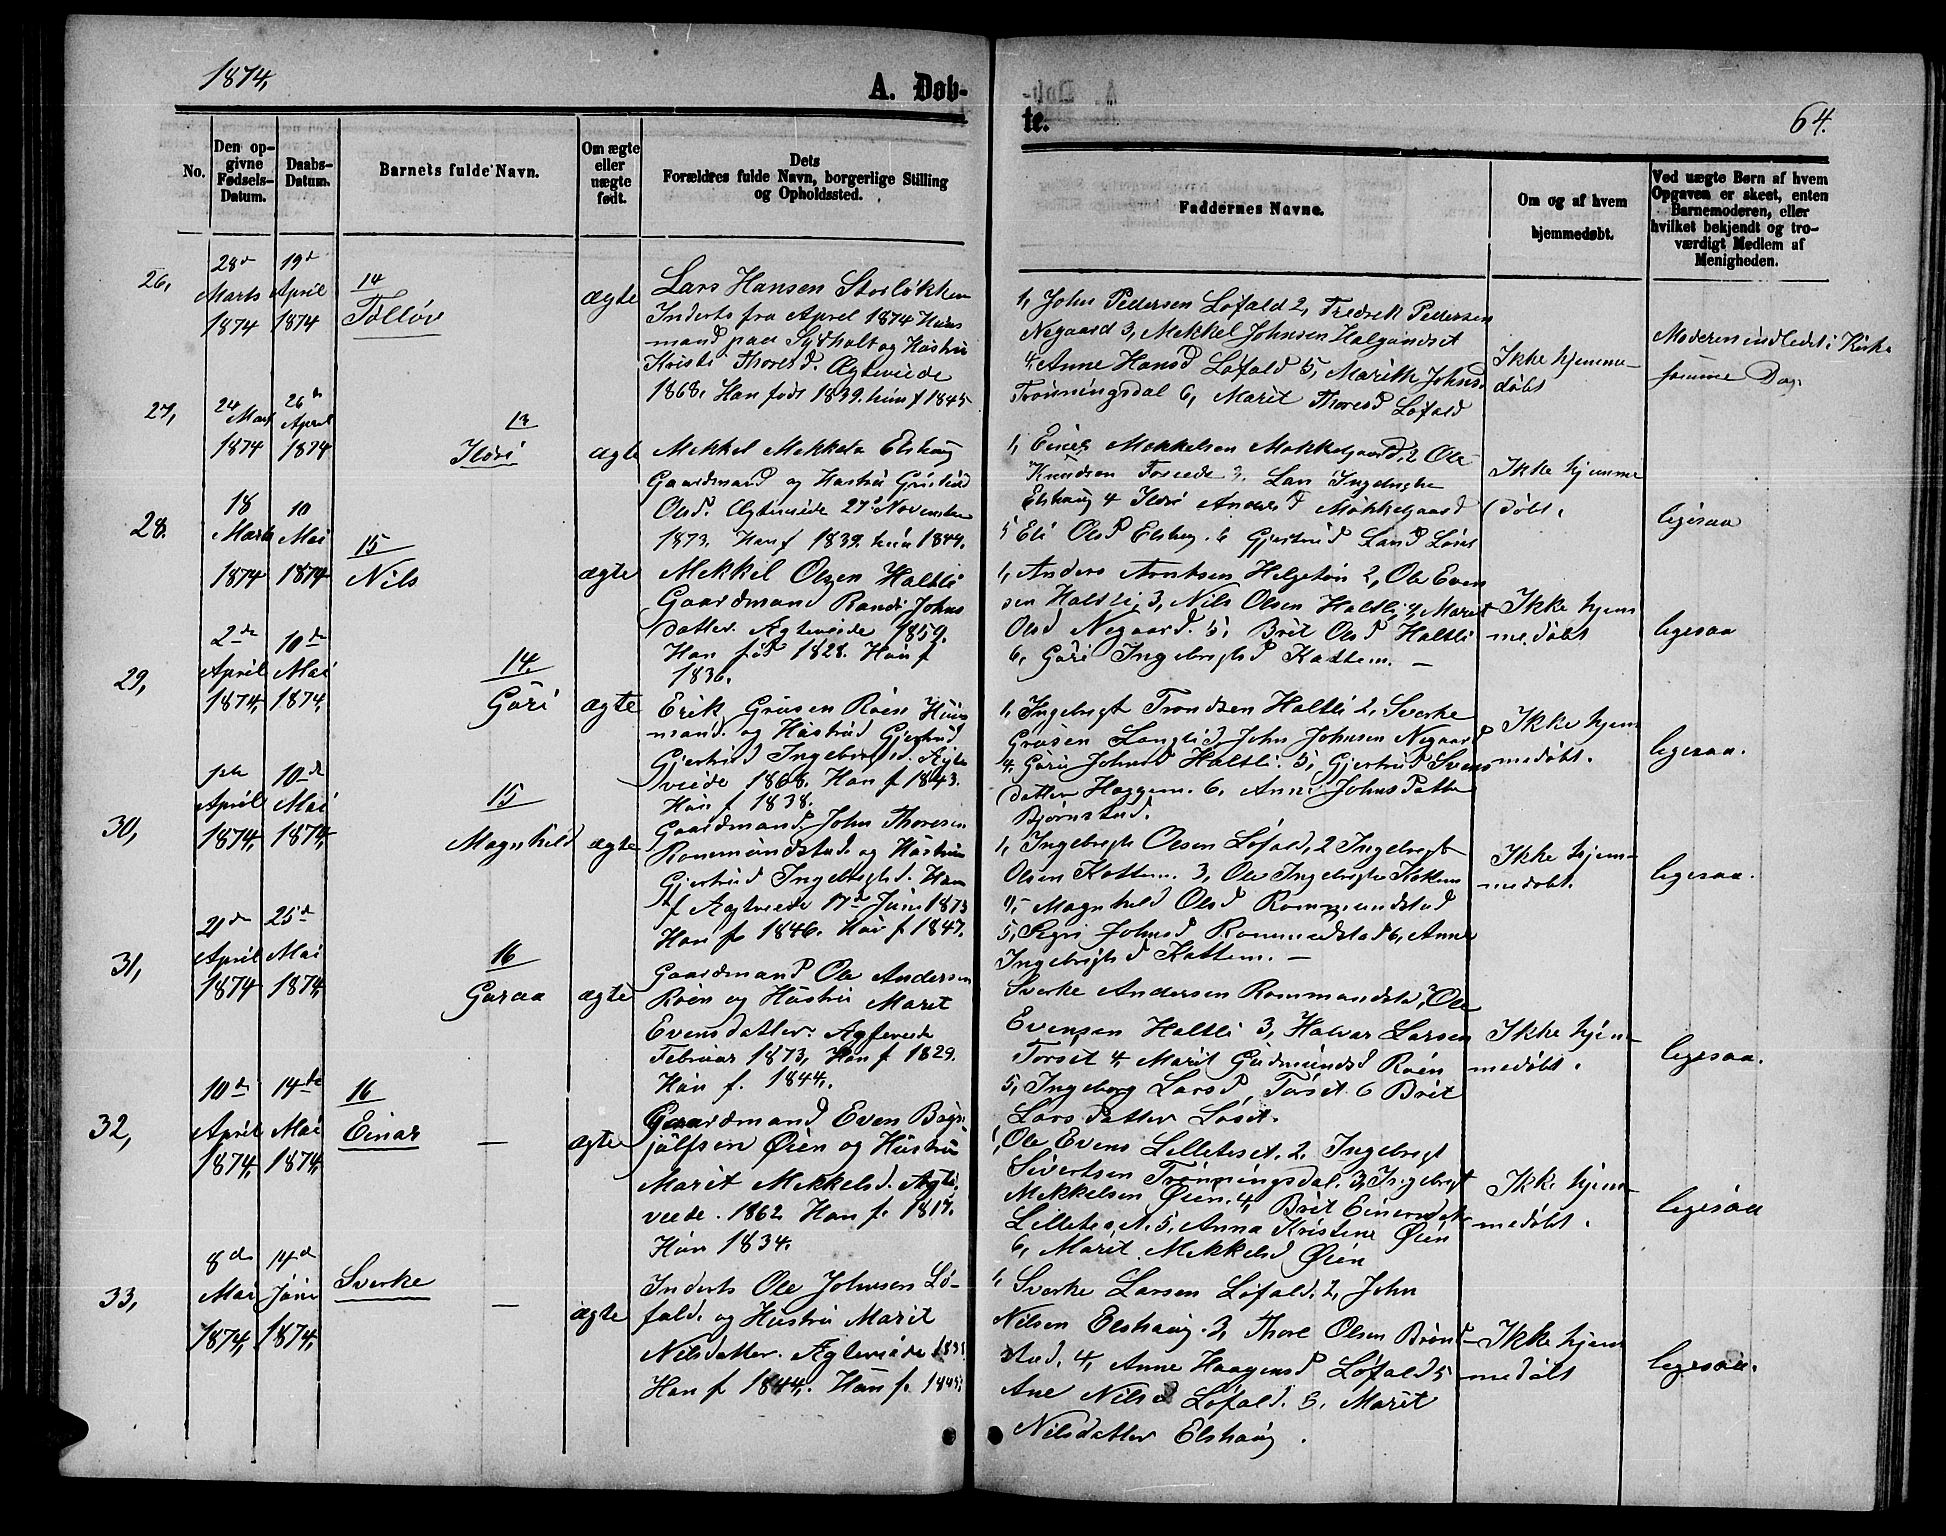 1874,
A. Døb-
te.
64.
No.
Den op-
givne
Fødsels-
Datum.
Daabs-
Datum.
Barnets fulde Navn.
Om ægte
eller
uægte
født.
Dets
Forældres fulde Navn, borgerlige Stilling
og Opholdssted.
Faddernes Navne.
Om og af hvem
hjemmedøbt.
Ved uægte Børn af hvem
Opgaven er skeet, enten
Barnemoderen, eller
hvilket bekjendt og tro-
værdigt Medlem af
Menigheden.
26,
28d
Marts
1874
19d
April
1874
14
Tølløv
ægte
Lars Hansen Storløkken
Inderts fra April 1874 Huus
mand paa og Hustru
Thoresd. Ægteviede
1868. Han født 1839. hun f 1845
1, John Pedersen Løfald 2, Fredrik Pedersen
Negaard 3, Mekkel Johnsen Halgundset
4, Anne Hansd Løfald 5, Marith Johnsd
Trønningsdal 6, Marit Thoresd Løfald
Ikke hjemme-
døbt
Moderen indledet i Kirke
samme Dag
27,
24
Marts
1874
26de
April
1874
13
Ildri
ægte
Mekkel Mekkels Elshaug
Gaardmand og Hustru
Olsd. Ægteviede 27d November
1873. Han f 1839. hun 1849.
1, Einer Mekkelsen Mekkelgaard, 2 Ole
Knudsen 3. Lars Ingebrigts
Elshaug 4 Ildri Andersd Mekkelgaard
5 Eli Olsd Elshaug. 6 Gjertrud Larsd
Ikke hjemme
døbt.
ligesaa
28.
18
Marts
1874
10
Mai
1874
15
Nils
ægte
Mekkel Olsen Haltli
Gaardmand Randi Johns
datter. Ægteviede 1859.
Han fød 1828. Hun f
1836.
1, Anders Arntsen Helgetun 2, Ole Even
sen Haltli, 3, Nils Olsen Haltli, 4, Maret
Olsd Negaard. 5, Brit Olsd Haltli
6, Gøri Ingebrigtsd Kattem. —
Ikke hjem
medøbt
ligesaa
29,
2de
April
1874,
10de
Mai
1874,
14
Gøri
ægte
Erik Gråsen Røen Huus
mand. og Hustrud Gjertrud
Gjertrud Ingebrigtsd. Ægte
viede 1868. Han f 1843.
Hun f 1838.
1, Ingebrigt Trondsen Haltli 2, Sverke
Gråsen Langli, 3, John Johnsen Negaard
4, Gøri Johnsd Haltli. 5, Gjertrud Svens
datter Haggem. 6, Anne Johnsdatter
Bjørnstad.
Ikke hjem
medøbt.
ligesaa.
30,
April
1874,
10de
Mai
1874,
15
Magnhild
ægte
Gaardmand. John Thoresen
Rommundstad. og Hustru
Gjertrud Ingebrigtsd. Han
f Ægteviede 17de Juni 1873
Han f. 1846. Hun f 1847.
1, Ingebrigts Olsen Løfald, 2 Ingebrigt
Olsen Kattem. 3, Ole Ingebrigts Kattem
4, Magnhild Olsd Rommundstad
5, Segri Johnsd Rommundstad 6, Anne
Ingebrigtsd Kattem. —
Ikke hjem-
medøbt.
ligesaa.
31,
21de
April
1874
25de
Mai
1874,
16
Guraa
ægte
Gaardmand Ole Andersen
Røen og Hustru Marit
Evensdatter. Ægteviede
Februar 1873, Han f 1829.
Hun f. 1844.
Sverke Andersen Rommundstad, 2 Ole
Evensen Haltli 3, Halvar Larsen
Torset 4, Marit Gudmundsd Røen
5, Ingeborg Larsd, Torset. 6 Brit
Larsdatter Løset.
Ikke hjem-
medøbt.
ligesaa.
32,
10de
April
1874,
14de
Mai
1874,
16
Einar
—
ægte
Gaardmand Even Bryn
julfsen Øien og Hustru
Marit Mekkelsd. Ægte
viede. 1862. Han f. 1817.
Hun 1834.
1, Ole Evens Lilleteset. 2, Ingebrigt
Sivertsen Trønningsdal. 3, Ingebrigt
Mekkelsen Øien. 4, Brit Einersdat
5, Anna Kristine Øien
6, Marit Mekkelsd Øien
Ikke hjem-
medøbt.
ligesaa
33,
8de
Mai
1874,
14de
Juni
1874,
Sverke
—
ægte
Inderts Ole Johnsen Lø-
fald. og Hustru Marit
Nilsdatter. Ægteviede
Han f 1844. Hun f.
1, Sverke Larsen Løfald. 2, John
Nilsen Elshaug. 3, Thore Olsen Brønd-
stad. 4, Anne Haagensd Løfald 5
Ane Nilsd Løfald. 5. Marit
Nilsdatter Elshaug.
Ikke hjem
medøbt
ligesaa.